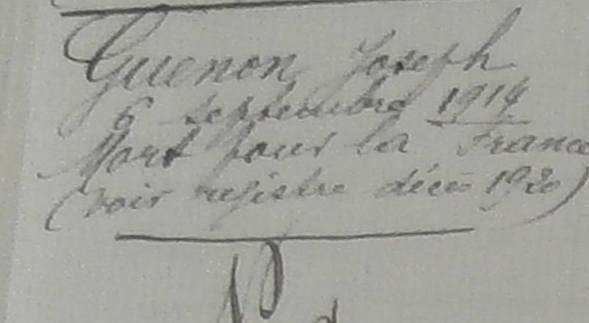 Guenon Joseph
6 septembre 1914
Mort pour la France
(voir registre décès 1920)